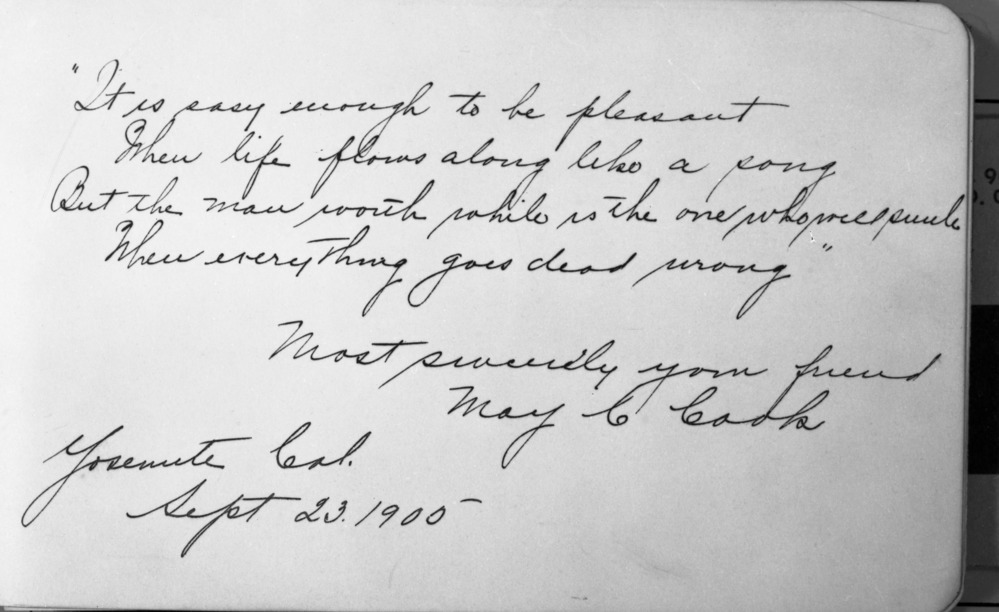 "It is easy enough to be pleasant
When life flows along like a song
But the man worth while is the one who will smile
When everything goes dead wrong"
Most sincerely your friend
May C Cook
Yosemite Cal.
Sept 23. 1905
9